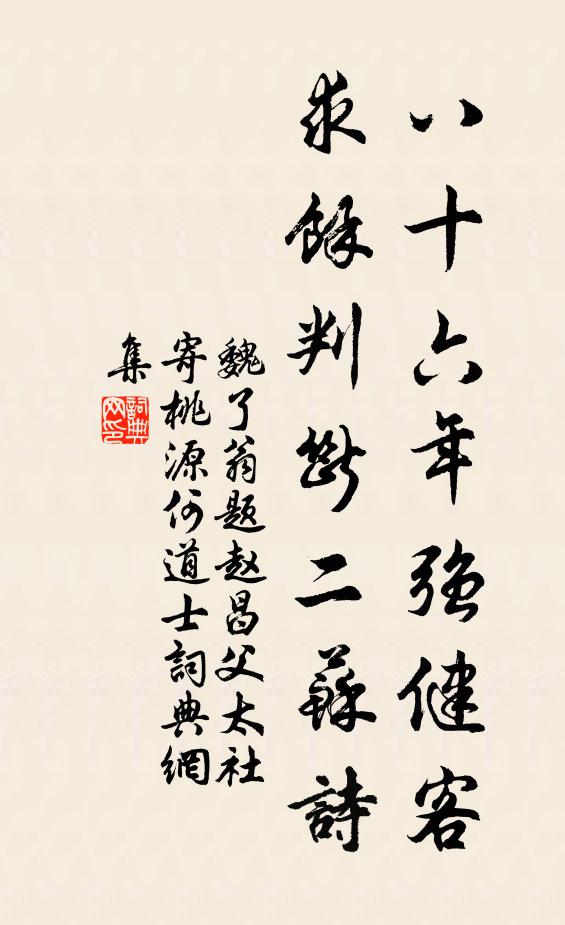 八十六年強健客
求餘判斷二蘇詩
魏了翁题赵昌父太社
寄桃源何道士詞典網
集
詞典网印